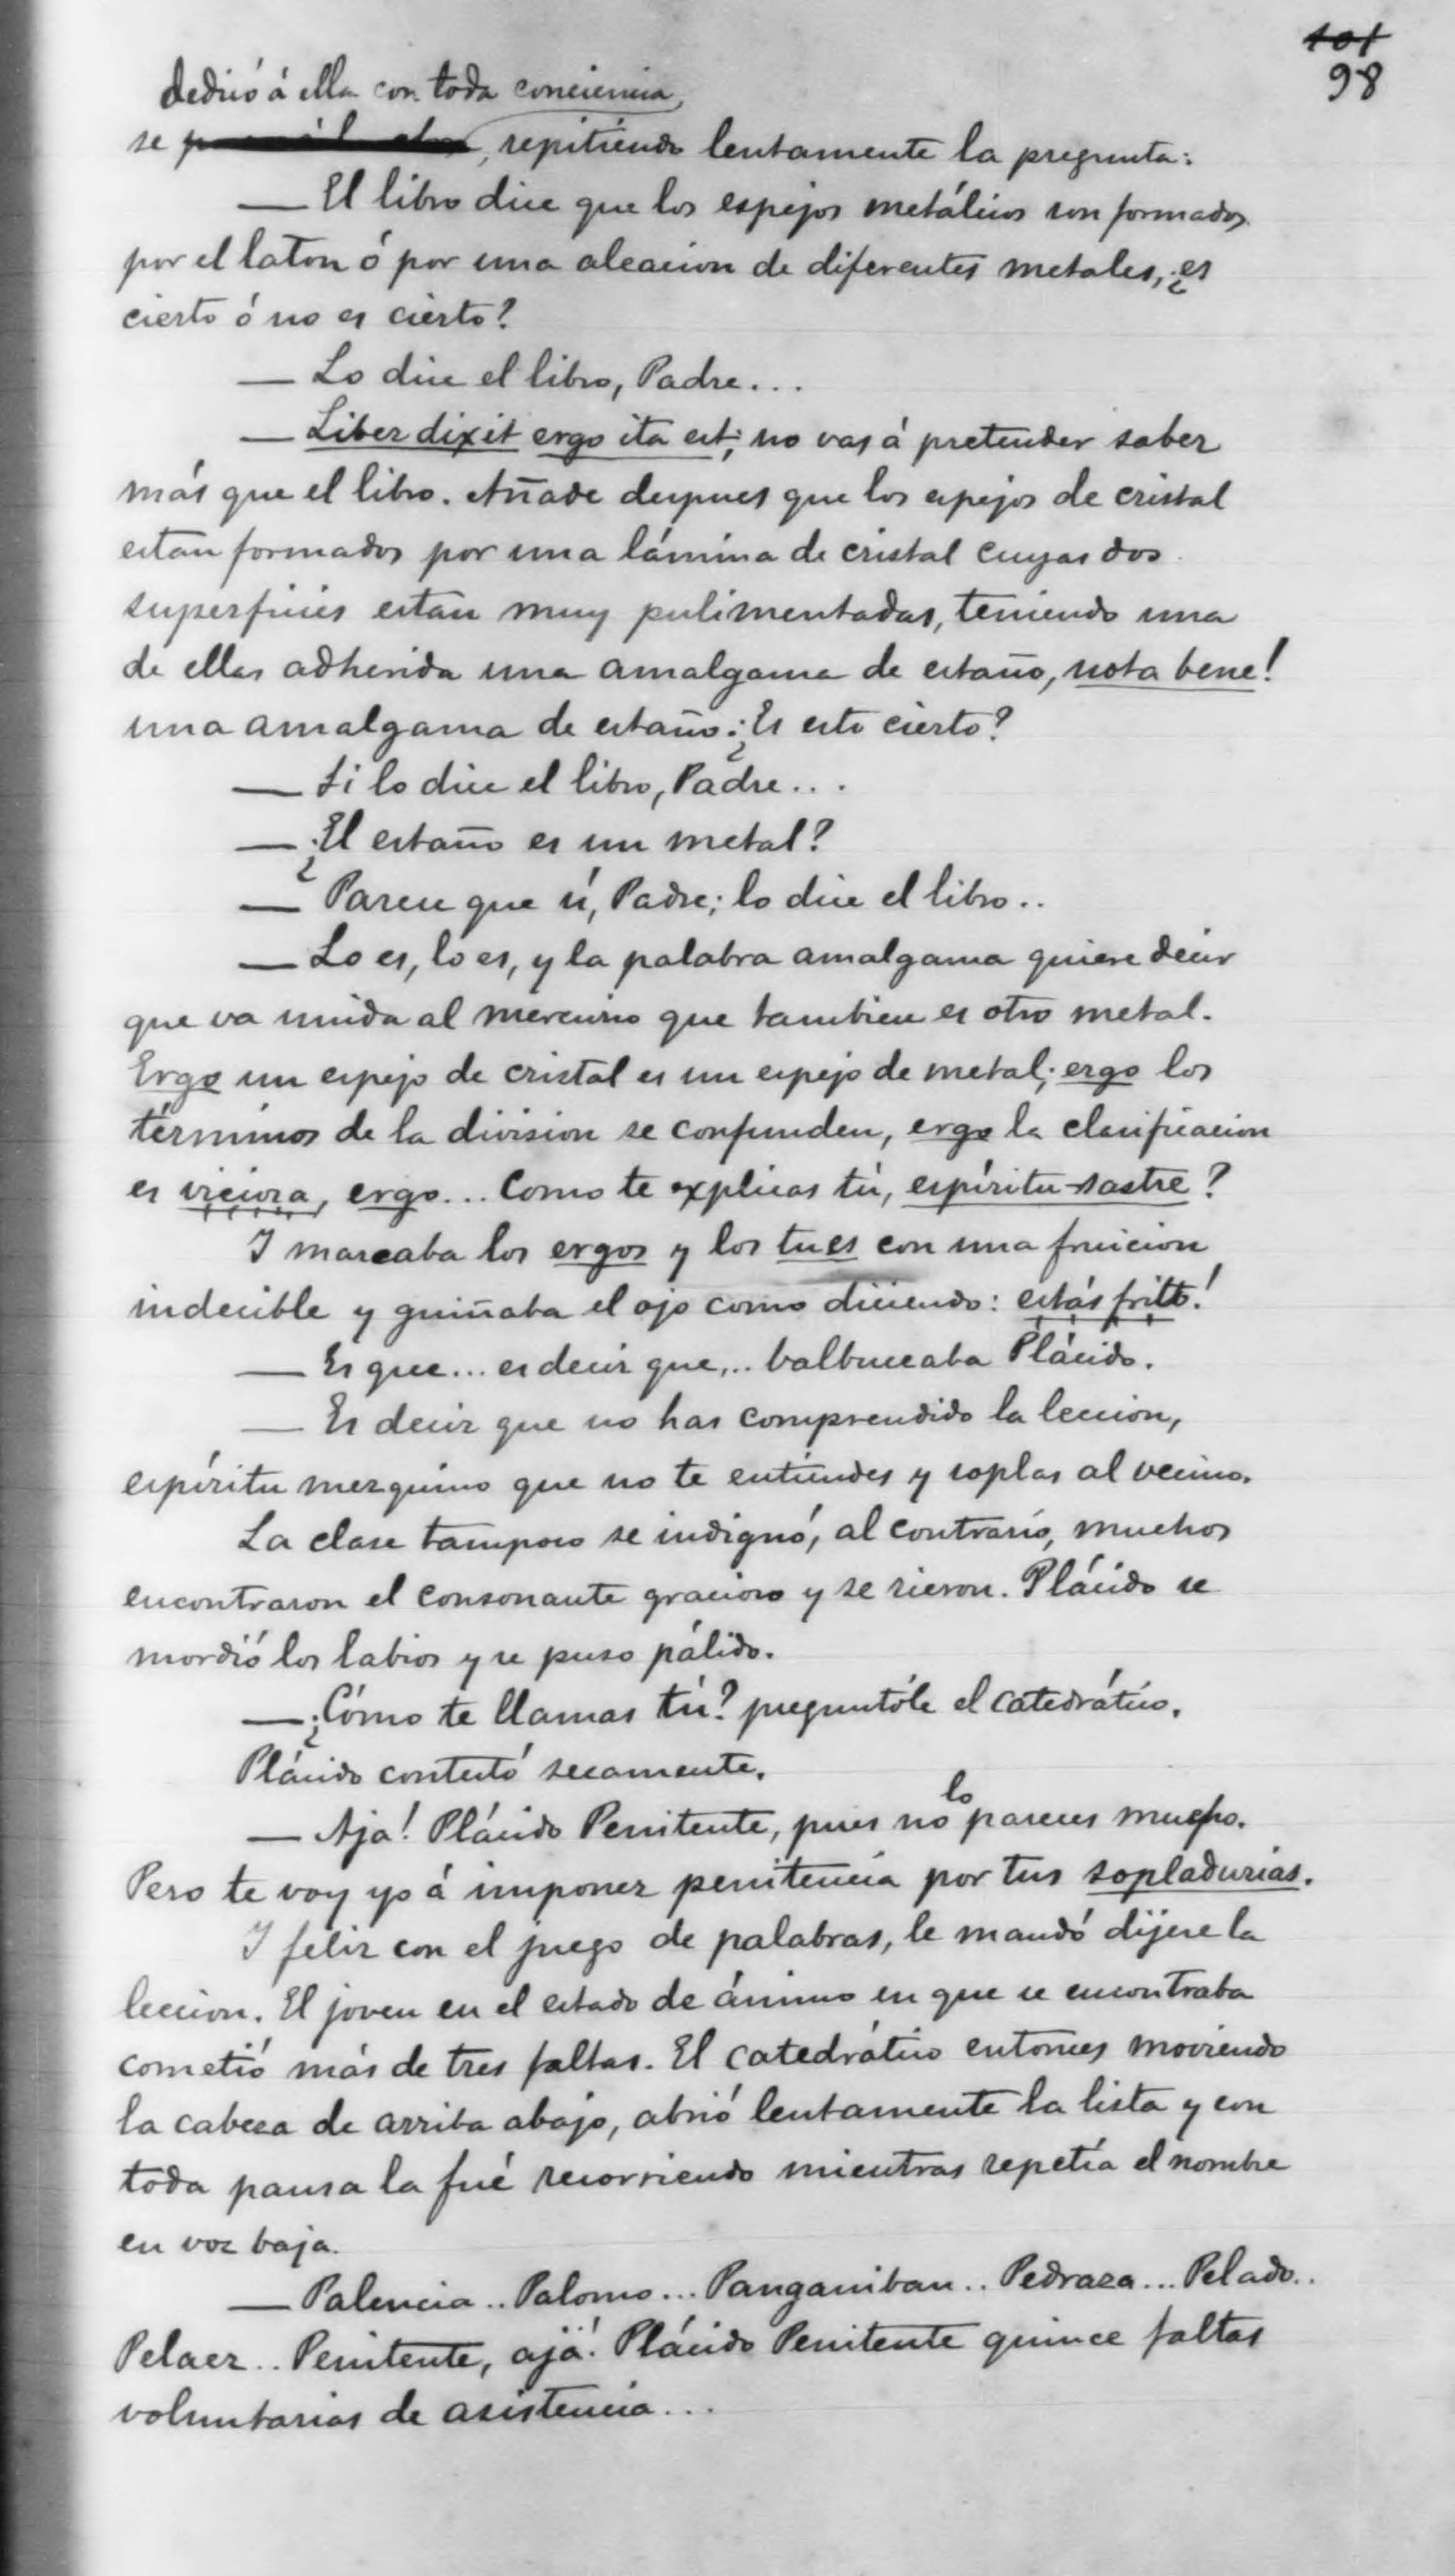 101
98
dedicó á ella con toda conciencia,
se , repitiendo lentamente la pregunta:
— El libro dice que los espejos metálicos son formados
por el laton ó por una aleacion de diferentes metales, ¿es
cierto ó no es cierto?
— Lo dice el libro, Padre...
— Liber dixit ergo ita est; no vas á pretender saber
más que el libro. Añade despues que los espejos de cristal
estan formados por una lámina de cristal cuyas dos
superficies estan muy pulimentadas, teniendo una
de ellas adherida una amalgama de estaño, nota bene!
una amalgama de estaño. ¿Es esto cierto?
— Si lo dice el libro, Padre...
— ¿El estaño es un metal?
— Parece que sí, Padre; lo dice el libro..
— Lo es, lo es, y la palabra amalgama quiere decir
que va unida al mercurio que tambien es otro metal.
Ergo un espejo de cristal es un espejo de metal; ergo los
términos de la division se confunden, ergo la clasificacion
es viciosa, ergo... Como te explicas tú, espíritu-sastre?
Y marcaba los ergos y los tues con una fruicion
indecible y guiñaba el ojo como diciendo: estás frito!
— Es que... es decir que... balbuceaba Plácido.
— Es decir que no has comprendido la leccion,
espíritu mezquino que no te entiendes y soplas al vecino.
La clase tampoco se indignó, al contrario, muchos
encontraron el consonante gracioso y se rieron. Plácido se
mordió los labios y se puso pálido.
— ¿Cómo te llamas tú? preguntóle el catedrático.
Plácido contestó secamente.
— Aja! Plácido Penitente, pues no lo pareces mucho.
Pero te voy yo á imponer penitencia por tus sopladurias.
Y feliz con el juego de palabras, le mandó dijese la
leccion. El joven en el estado de ánimo en que se encontraba
cometió más de tres faltas. El catedrático entonces moviendo
la cabeza de arriba abajo, abrió lentamente la lista y con
toda pausa la fué recorriendo mientras repetía el nombre
en voz baja.
— Palencia.. Palomo... Panganiban.. Pedraza... Pelado..
Pelaez.. Penitente, ajá! Plácido Penitente quince faltas
voluntarias de asistencia...